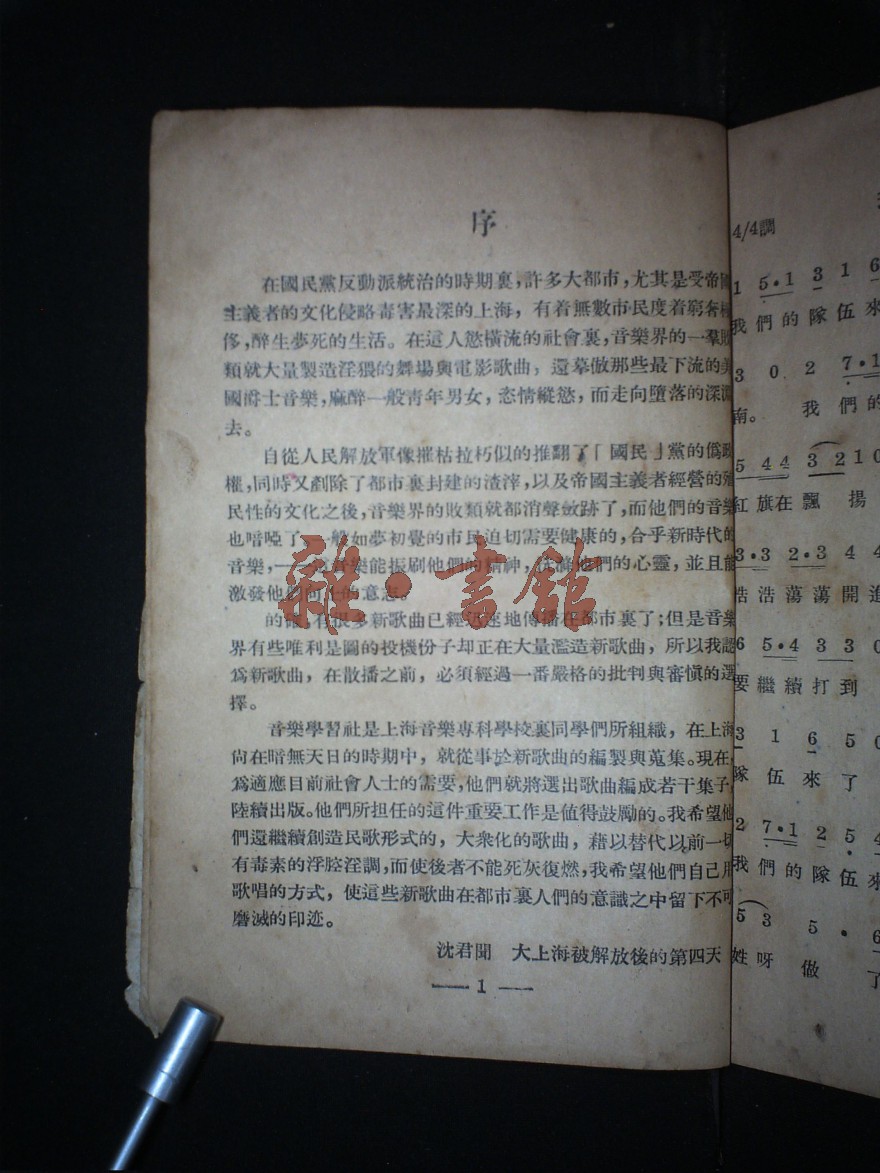 序
在國民黨反動派統治的時期裏,許多大都市,尤其是受帝國
主義者的文化侵略毒害最深的上海,有着無數市民度着窮奢極
侈,醉生夢死的生活。在這人慾橫流的社會裏,音樂界的一羣敗
類就大量製造淫猥的舞場與電影歌曲,還摹倣那些最下流的美
國爵士音樂,麻醉一般青年男女,恣情縱慾,而走向墮落的深淵
去。
自從人民解放軍像摧枯拉朽似的推翻了「國民」黨的僞政
權,同時又剷除了都市裏封建的渣滓,以及帝國主義者經營的殖
民性的文化之後,音樂界的敗類就都消聲斂跡了,而他們的音樂
也喑啞了。一般如夢初覺的市民迫切需要健康的,合乎新時代的
音樂,——這音樂能振刷他們的精神,洗滌他們的心靈,並且能
激發他們向上的意志。
的確,有很多新歌曲已經迅速地傳播在都市裏了;但是音樂
界有些唯利是圖的投機份子却正在大量濫造新歌曲,所以我認
爲新歌曲,在散播之前,必須經過一番嚴格的批判與審愼的選
擇。
音樂學習社是上海音樂專科學校裏同學們所組織,在上海
尙在暗無天日的時期中,就從事於新歌曲的編製與蒐集。現在,
爲適應目前社會人士的需要,他們就將選出歌曲編成若干集子,
陸續出版。他們所担任的這件重要工作是値得鼓勵的。我希望他
們還繼續創造民歌形式的,大衆化的歌曲,藉以替代以前一切
有毒素的浮腔淫調,而使後者不能死灰復燃,我希望他們自己用
歌唱的方式,使這些新歌曲在都市裏人們的意識之中留下不可
磨滅的印迹。
沈君聞 大上海被解放後的第四天
—— 1 ——
雜·書舘
4/4調
1 5·1 3 1 6
我們的隊伍來
3 0 2 7·1
南。 我們的
5 44 3 21 0
紅旗在飄揚
3·3 2·3 4 4
浩浩蕩蕩開進
6 5·4 3 3 0
要繼續打到
3 1 6 5 0
隊伍來了
2 7·1 2 5 4
我們的隊伍來
5 3 5 · 6
姓呀 做 了